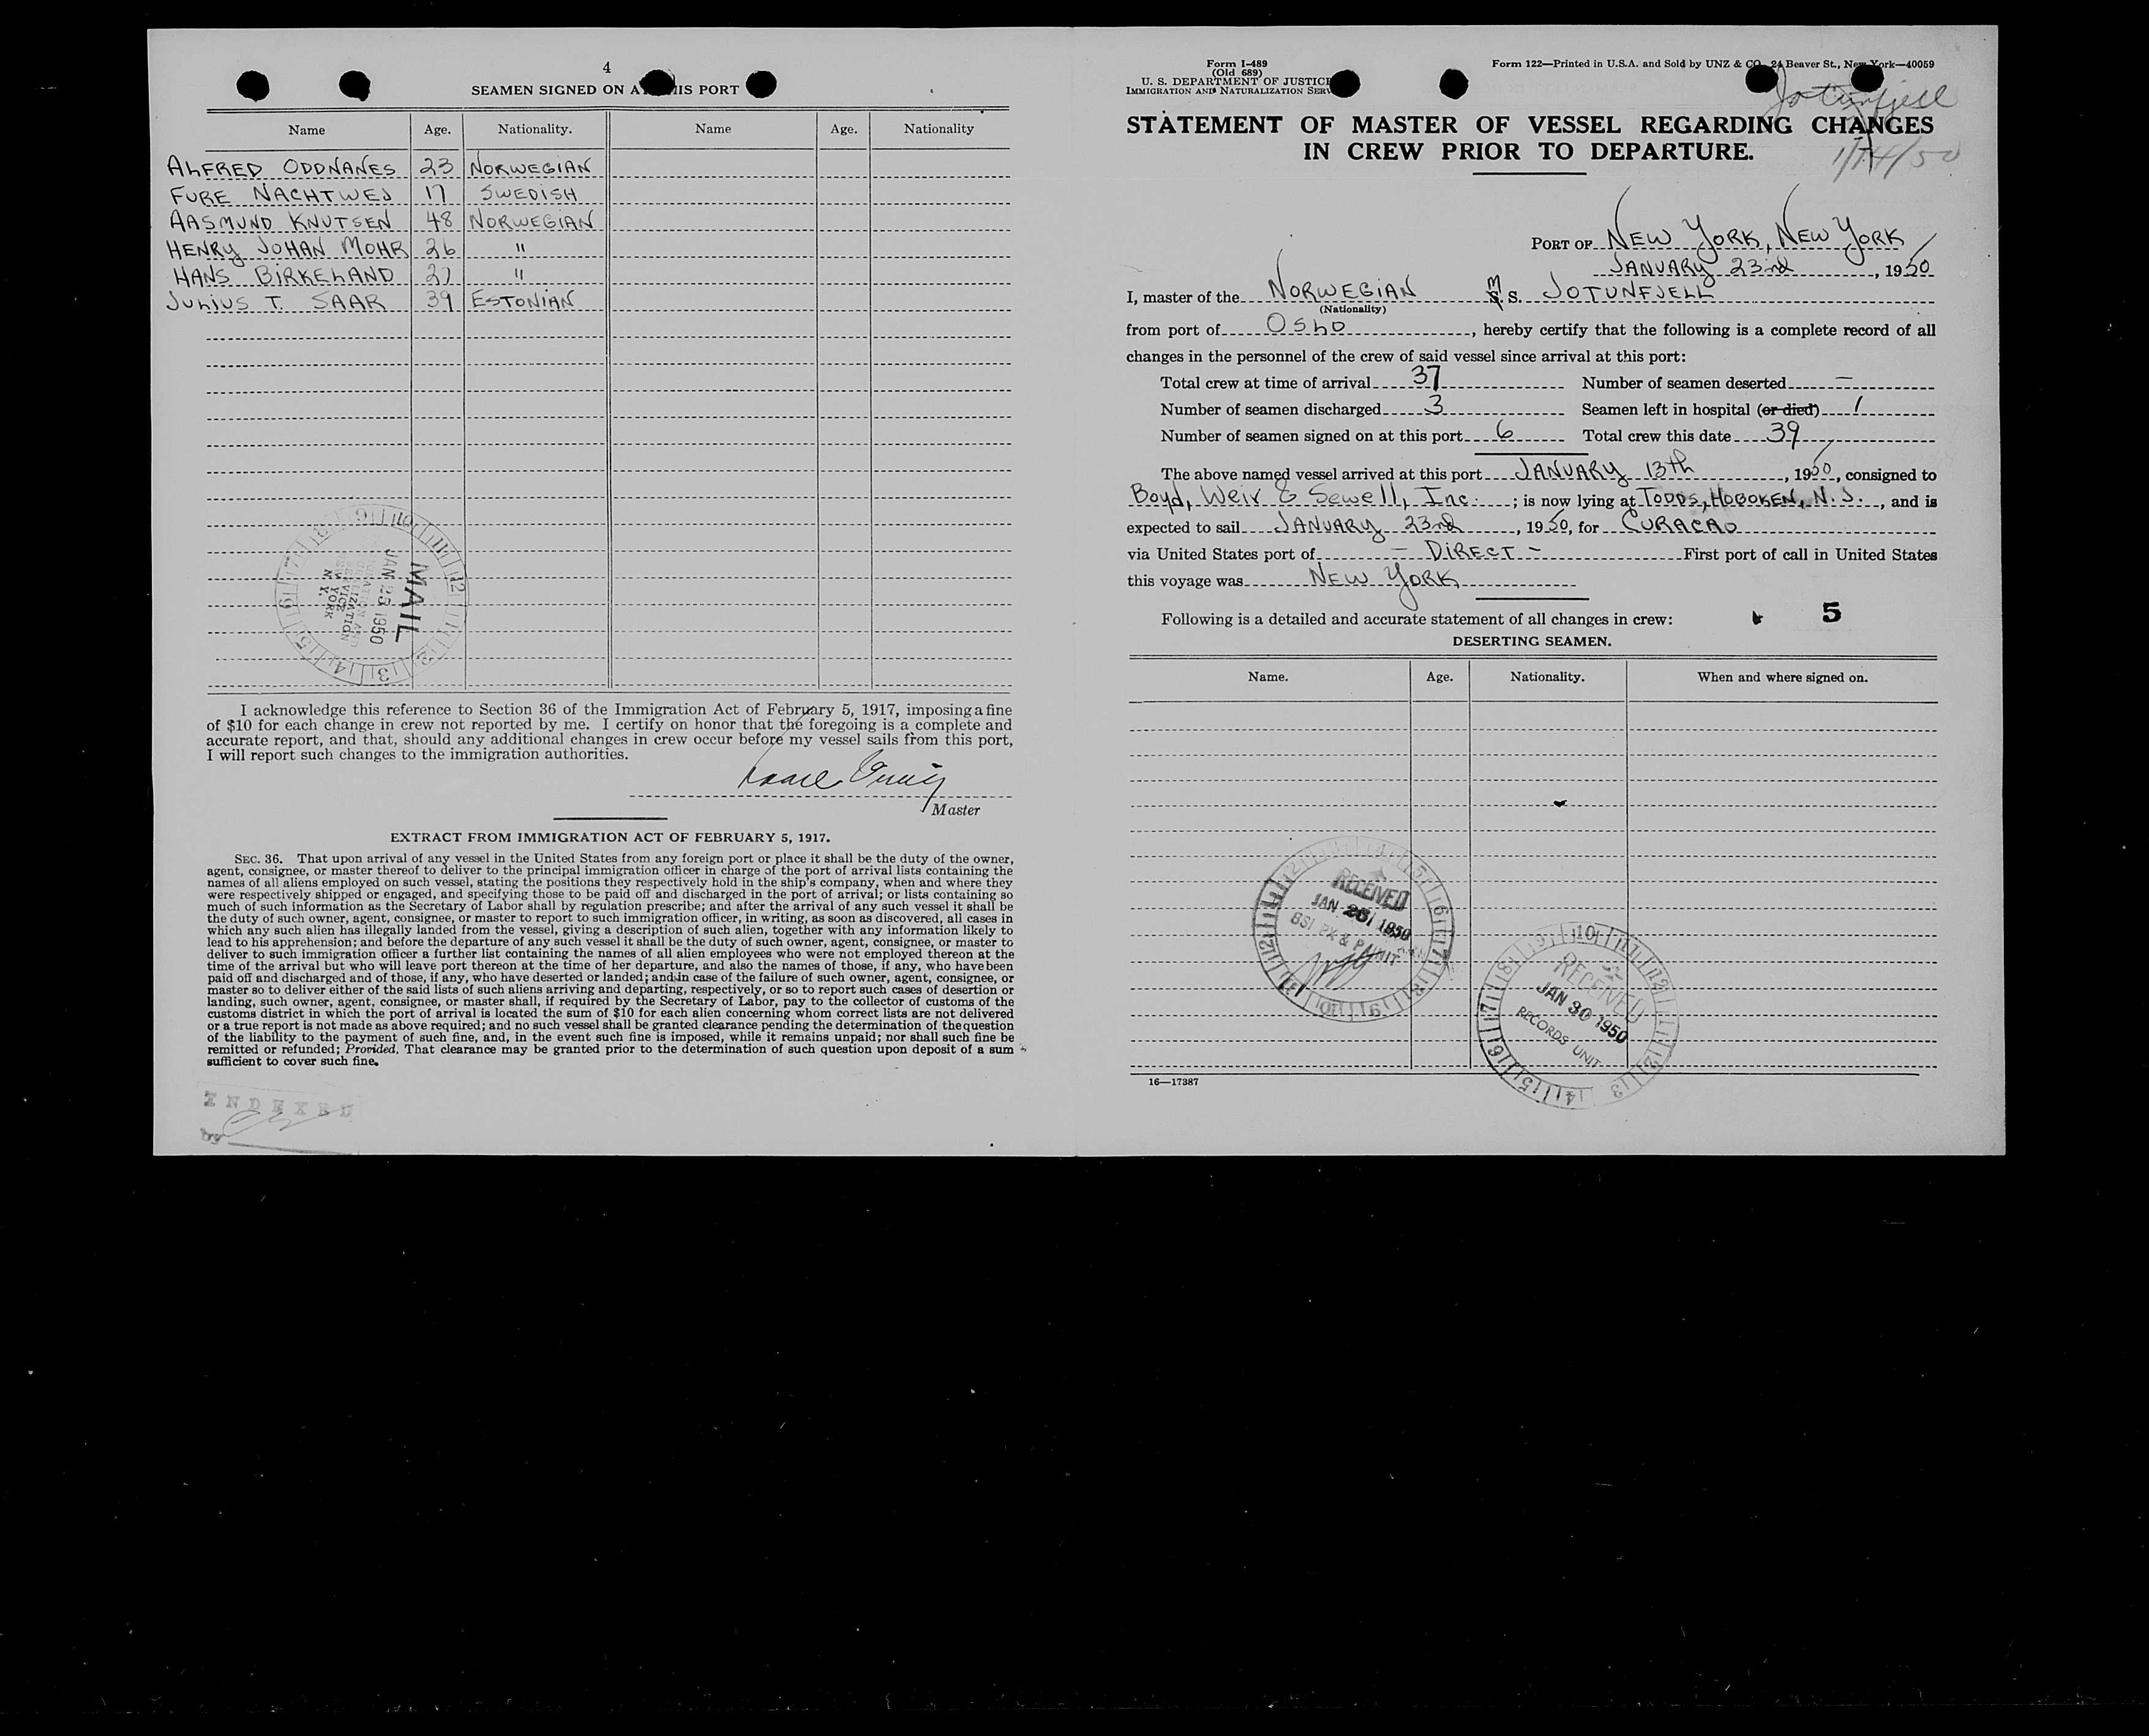 4
SEAMEN SIGNED ON A IS PORT
Name Age. Nationality. Name Age. Nationality
ALFRED ODDNANES 23 NORWEGIAN
FURE NACHTWEJ 17 SWEDISH
AASMUND KNUTSEN 48 NORWEGIAN
HENRY JOHAN MOHR 26 "
HANS BIRKELAND 27 "
JULIUS T. SAAR 39 ESTONIAN
MAIL
JAN 25 1950
NEW YORK
N. Y.
I acknowledge this reference to Section 36 of the Immigration Act of February 5, 1917, imposing a fine
of $10 for each change in crew not reported by me. I certify on honor that the foregoing is a complete and
accurate report, and that, should any additional changes in crew occur before my vessel sails from this port,
I will report such changes to the immigration authorities.
Master
EXTRACT FROM IMMIGRATION ACT OF FEBRUARY 5, 1917.
SEC. 36. That upon arrival of any vessel in the United States from any foreign port or place it shall be the duty of the owner,
agent, consignee, or master thereof to deliver to the principal immigration officer in charge of the port of arrival lists containing the
names of all aliens employed on such vessel, stating the positions they respectively hold in the ship's company, when and where they
were respectively shipped or engaged, and specifying those to be paid off and discharged in the port of arrival; or lists containing so
much of such information as the Secretary of Labor shall by regulation prescribe; and after the arrival of any such vessel it shall be
the duty of such owner, agent, consignee, or master to report to such immigration officer, in writing, as soon as discovered, all cases in
which any such alien has illegally landed from the vessel, giving a description of such alien, together with any information likely to
lead to his apprehension; and before the departure of any such vessel it shall be the duty of such owner, agent, consignee, or master to
deliver to such immigration officer a further list containing the names of all alien employees who were not employed thereon at the
time of the arrival but who will leave port thereon at the time of her departure, and also the names of those, if any, who have been
paid off and discharged and of those, if any, who have deserted or landed; and in case of the failure of such owner, agent, consignee, or
master so to deliver either of the said lists of such aliens arriving and departing, respectively, or so to report such cases of desertion or
landing, such owner, agent, consignee, or master shall, if required by the Secretary of Labor, pay to the collector of customs of the
customs district in which the port of arrival is located the sum of $10 for each alien concerning whom correct lists are not delivered
or a true report is not made as above required; and no such vessel shall be granted clearance pending the determination of the question
of the liability to the payment of such fine, and, in the event such fine is imposed, while it remains unpaid; nor shall such fine be
remitted or refunded; Provided, That clearance may be granted prior to the determination of such question upon deposit of a sum
sufficient to cover such fine.
INDEXED
by
Form I-489
(Old 689)
U. S. DEPARTMENT OF JUSTICE
IMMIGRATION AND NATURALIZATION SERV
Form 122—Printed in U.S.A. and Sold by UNZ & CO. 24 Beaver St., New York—40059
Jotunfjell
1/14/50
STATEMENT OF MASTER OF VESSEL REGARDING CHANGES
IN CREW PRIOR TO DEPARTURE.
PORT OF NEW YORK, NEW YORK
JANUARY 23rd, 1950
I, master of the NORWEGIAN M S. JOTUNFJELL
(Nationality)
from port of OSLO, hereby certify that the following is a complete record of all
changes in the personnel of the crew of said vessel since arrival at this port:
Total crew at time of arrival 37 Number of seamen deserted —
Number of seamen discharged 3 Seamen left in hospital (or died) 1
Number of seamen signed on at this port 6 Total crew this date 39
The above named vessel arrived at this port JANUARY 13th, 1950, consigned to
Boyd, Weir & Sewell, Inc. ; is now lying at TODDS, HOBOKEN, N. J., and is
expected to sail JANUARY 23rd, 1950, for CURACAO
via United States port of — DIRECT — First port of call in United States
this voyage was NEW YORK
Following is a detailed and accurate statement of all changes in crew: 5
DESERTING SEAMEN.
Name. Age. Nationality. When and where signed on.
RECEIVED
JAN 26 1950
RECEIVED
JAN 30 1950
RECORDS UNIT
16—17387